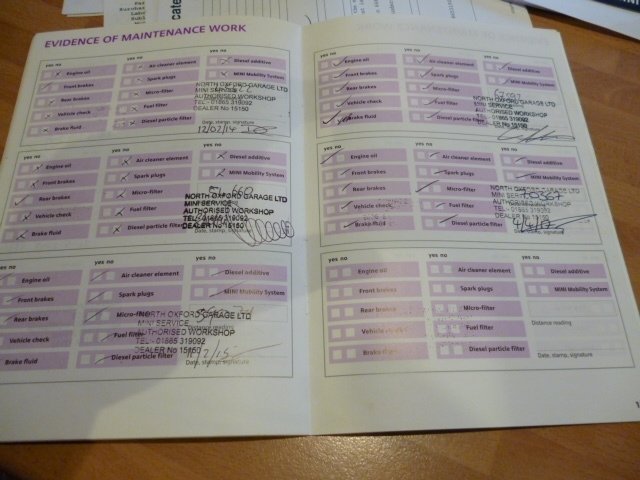 EVIDENCE OF MAINTENANCE WORK
yes no
yes no
yes no
Engine oil
Air cleaner element
Diesel additive
Front brakes
Spark plugs
MINI Mobility System
Rear brakes
Micro-filter
Vehicle check
Fuel filter
Brake fluid
Diesel particle filter
NORTH OXFORD GARAGE LTD
MINI SERVICE
AUTHORISED WORKSHOP
TEL:- 01865 319092
DEALER No 15150
12/02/14
yes no
yes no
yes no
Engine oil
Air cleaner element
Diesel additive
Front brakes
Spark plugs
MINI Mobility System
Rear brakes
Micro-filter
Vehicle check
Fuel filter
Brake fluid
Diesel particle filter
NORTH OXFORD GARAGE LTD
MINI SERVICE
AUTHORISED WORKSHOP
TEL:- 01865 319092
DEALER No 15150
Date, stamp, signature
yes no
yes no
yes no
Engine oil
Air cleaner element
Diesel additive
Front brakes
Spark plugs
MINI Mobility System
Rear brakes
Micro-filter
Vehicle check
Fuel filter
Brake fluid
Diesel particle filter
NORTH OXFORD GARAGE LTD
MINI SERVICE
AUTHORISED WORKSHOP
TEL:- 01865 319092
DEALER No 15150
Date, stamp, signature
yes no
yes no
yes no
Engine oil
Air cleaner element
Diesel additive
Front brakes
Spark plugs
MINI Mobility System
Rear brakes
Micro-filter
Vehicle check
Fuel filter
Brake fluid
Diesel particle filter
NORTH OXFORD GARAGE LTD
MINI SERVICE
AUTHORISED WORKSHOP
TEL:- 01865 319092
DEALER No 15150
yes no
yes no
yes no
Engine oil
Air cleaner element
Diesel additive
Front brakes
Spark plugs
MINI Mobility System
Rear brakes
Micro-filter
Vehicle check
Fuel filter
Brake fluid
Diesel particle filter
NORTH OXFORD GARAGE LTD
MINI SERVICE
AUTHORISED WORKSHOP
TEL:- 01865 319092
DEALER No 15150
Date, stamp, signature
yes no
yes no
yes no
Engine oil
Air cleaner element
Diesel additive
Front brakes
Spark plugs
MINI Mobility System
Rear brakes
Micro-filter
Distance reading
Vehicle check
Fuel filter
Brake fluid
Diesel particle filter
Date, stamp, signature